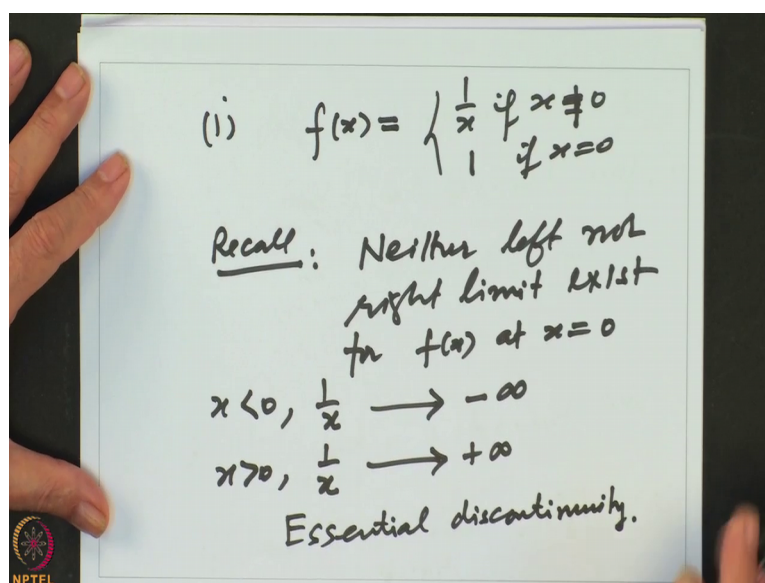 (i) f(x) = { 1/x if x ≠ 0
1 if x = 0
Recall : Neither left not
right limit exist
for f(x) at x = 0
x < 0, 1/x → - ∞
x > 0, 1/x → + ∞
Essential discontinuity.
NPTEL